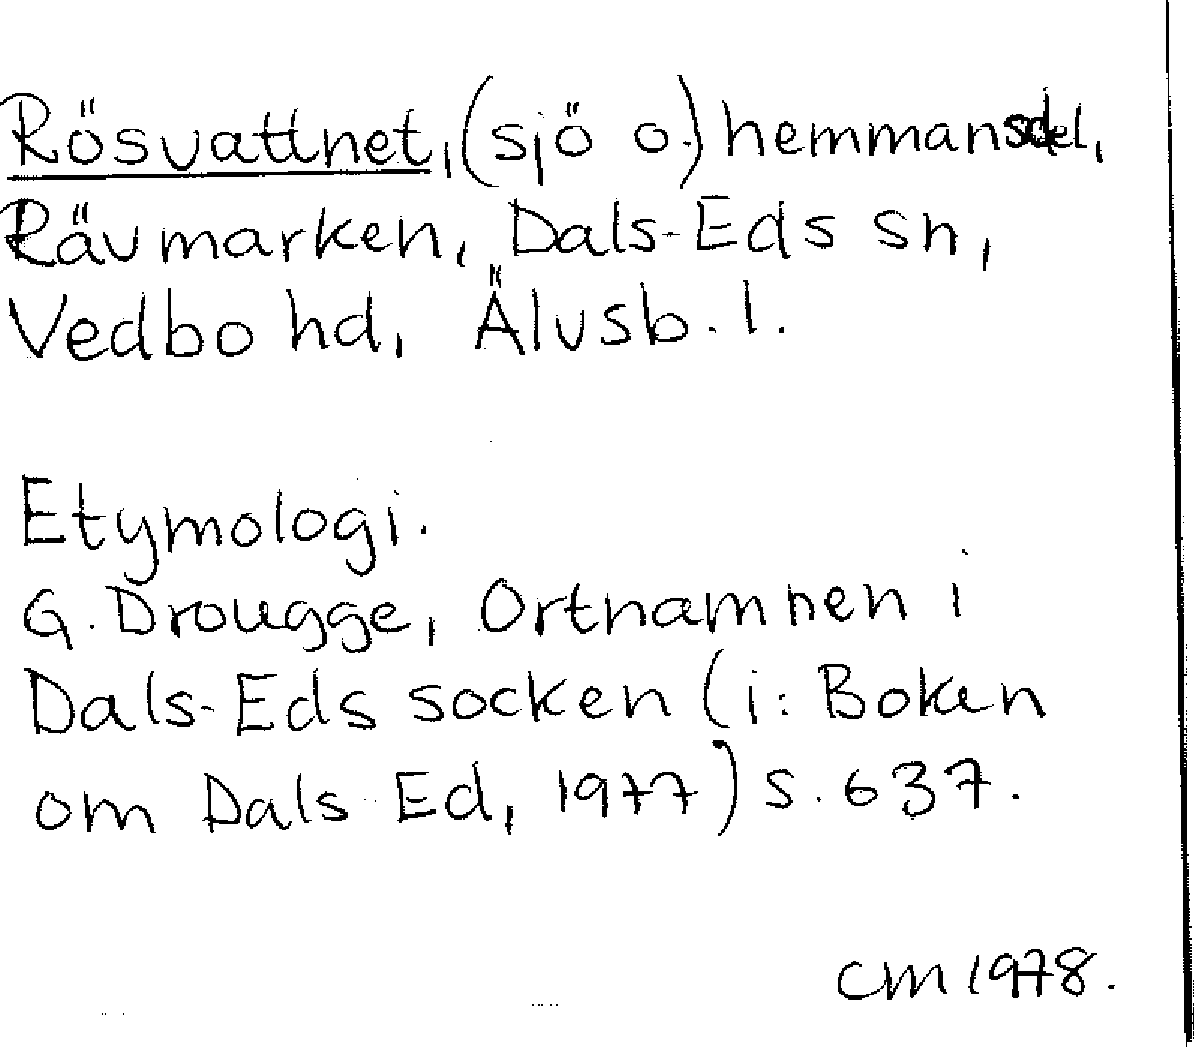 Rösvattnet, (sjö o.) hemmansdel,
Rävmarken, Dals-Eds sn,
Vedbo hd, Älvsb. l.
Etymologi.
G. Drougge, Ortnamnen i
Dals-Eds socken (i: Boken
om Dals-Ed, 1977) s. 637.
CM 1978.